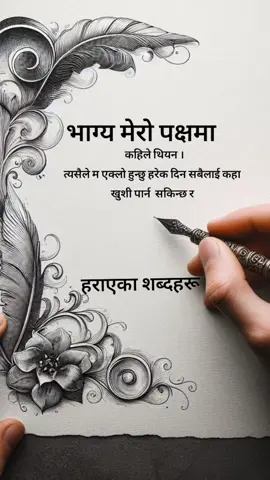 भाग्य मेरो पक्षमा
कहिले थियन ।
त्यसैले म एक्लो हुन्छु हरेक दिन सबैलाई कहा
खुशी पार्न सकिन्छ र
हराएका शब्दहरू